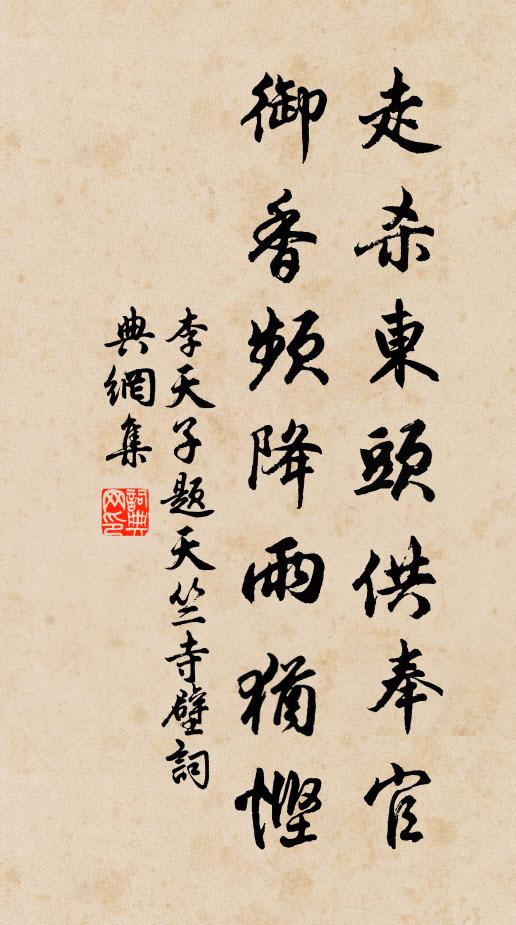 走杀東頭供奉官
御香頻降雨猶慳
李天子题天竺寺壁詞
典網集
詞典網印